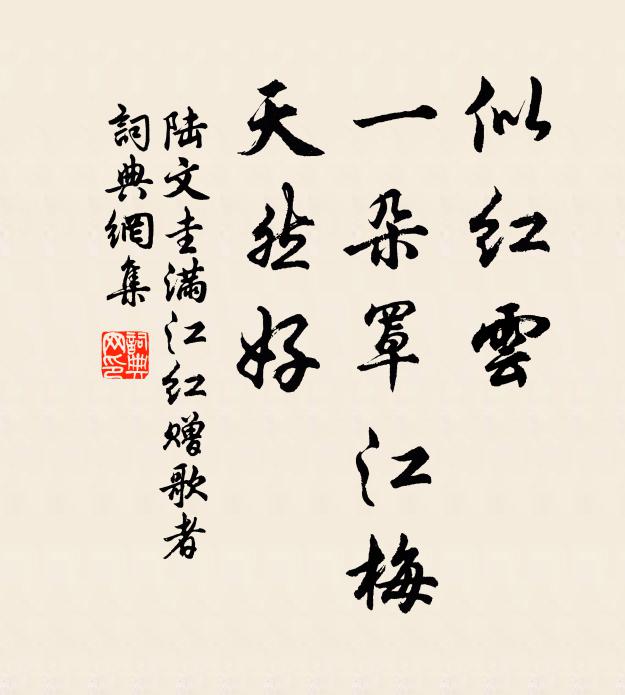 似红雲
一朵罩江梅
天然好
陆文圭满江红赠歌者
詞典網集
詞典网印